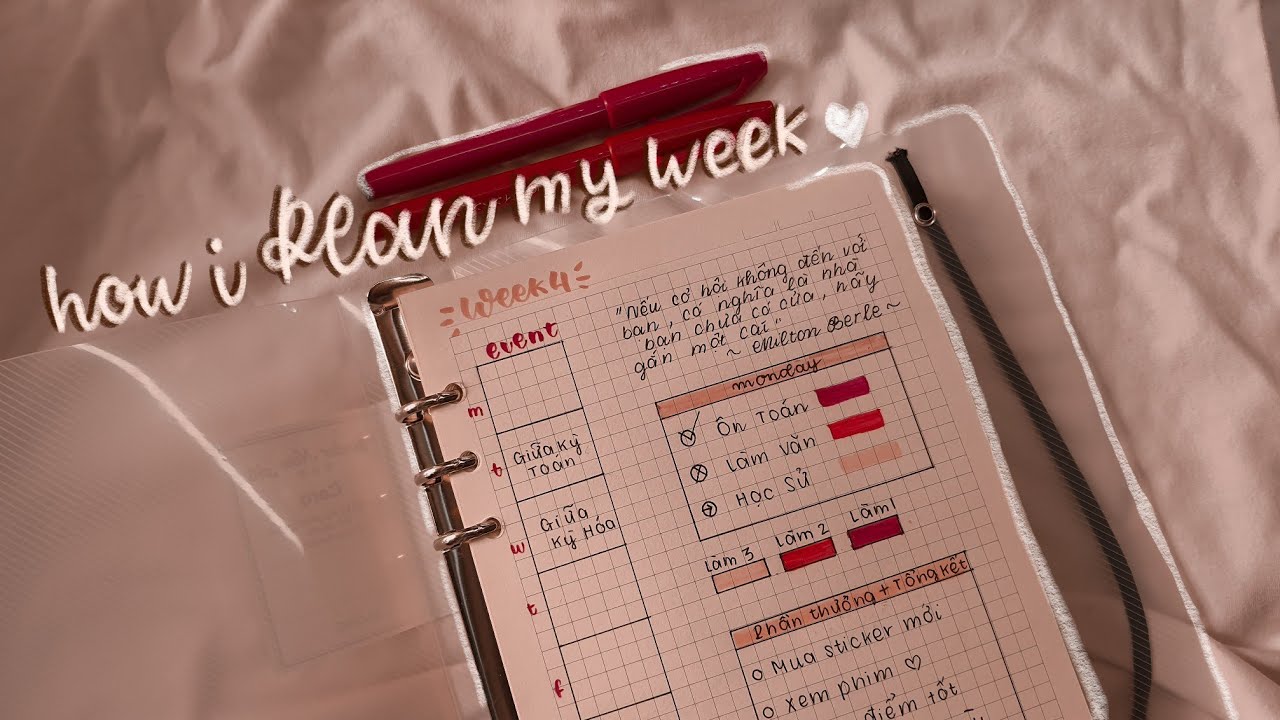 how i plan my week
week 4
event
m
t
Giữa kỳ
Toán
w
Giữa
kỳ Hóa
t
f
"Nếu cơ hội không đến với
bạn, có nghĩa là nhà
bạn chưa có cửa, hãy
gắn một cái"
~ Milton Berle ~
monday
Ôn Toán
Làm Văn
Học Sử
Làm 3
Làm 2
Làm 1
Phần thưởng + Tổng kết
Mua sticker mới
Xem phim ♡
điểm tốt